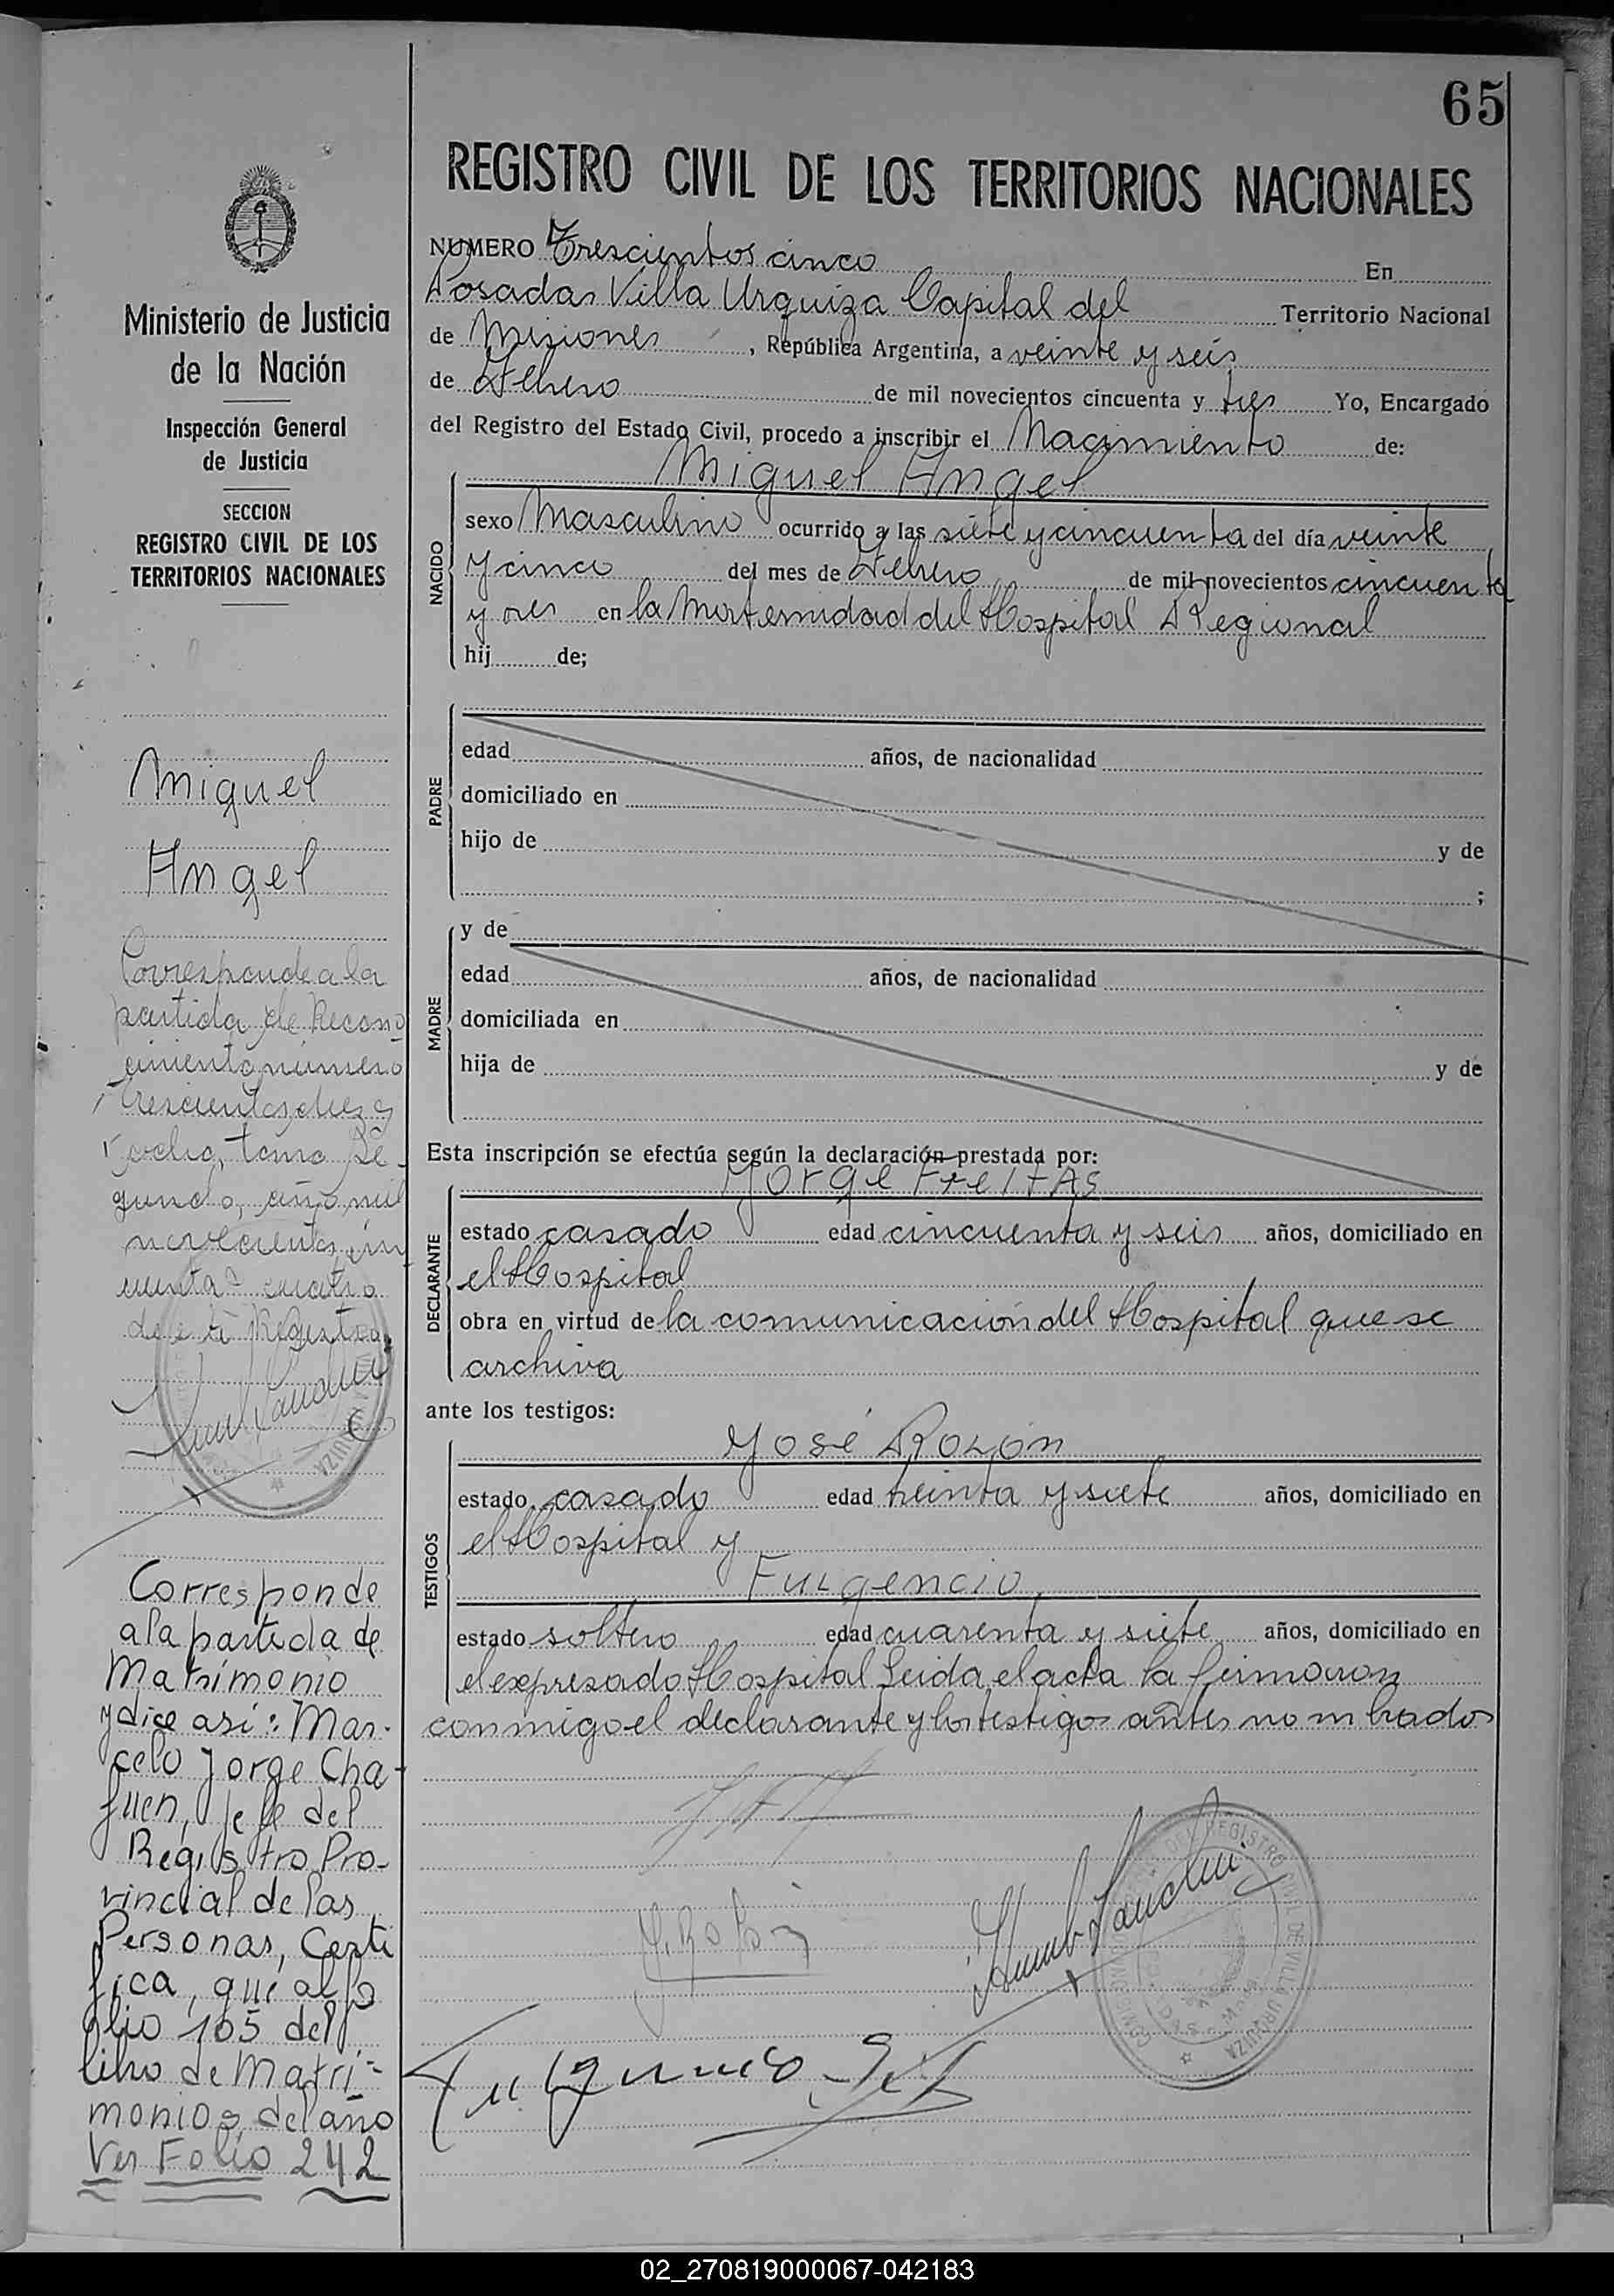 65
REGISTRO CIVIL DE LOS TERRITORIOS NACIONALES
NUMERO Trescientos cinco En
Posadas Villa Urquiza Capital del Territorio Nacional
de Misiones, República Argentina, a veinte y seis
de Febrero de mil novecientos cincuenta y tres Yo, Encargado
del Registro del Estado Civil, procedo a inscribir el Nacimiento de:
Miguel Angel
NACIDO
sexo Masculino ocurrido a las siete y cincuenta del día veinte
y cinco del mes de Febrero de mil novecientos cincuenta
y tres en la Maternidad del Hospital Regional
hij de;
PADRE
edad años, de nacionalidad
domiciliado en
hijo de y de
;
MADRE
y de
edad años, de nacionalidad
domiciliada en
hija de y de
Esta inscripción se efectúa según la declaración prestada por:
Jorge Freitas
DECLARANTE
estado casado edad cincuenta y seis años, domiciliado en
el Hospital
obra en virtud de la comunicación del Hospital que se
archiva
ante los testigos:
José Rolón
TESTIGOS
estado casado edad treinta y siete años, domiciliado en
el Hospital y
Fulgencio
estado soltero edad cuarenta y siete años, domiciliado en
el expresado Hospital Leida el acta la firmaron
conmigo el declarante y los testigos antes nombrados
J. Rolón
Fulgencio
Ministerio de Justicia
de la Nación
Inspección General
de Justicia
SECCION
REGISTRO CIVIL DE LOS
TERRITORIOS NACIONALES
Miguel
Angel
Corresponde a la
partida de Recono
cimiento numero
Trescientos diez y
ocho, tomo Se-
gundo, año mil
novecientos cin
cuenta y cuatro
de este Registro
Corresponde
a la partida de
Matrimonio
y dice así: Mar-
celo Jorge Cha-
fuen, Jefe del
Registro Pro-
vincial de las
Personas, Certi
fica, que al fo
lio 105 del
libro de Matri-
monios del año
Ver Folio 242
02_270819000067-042183